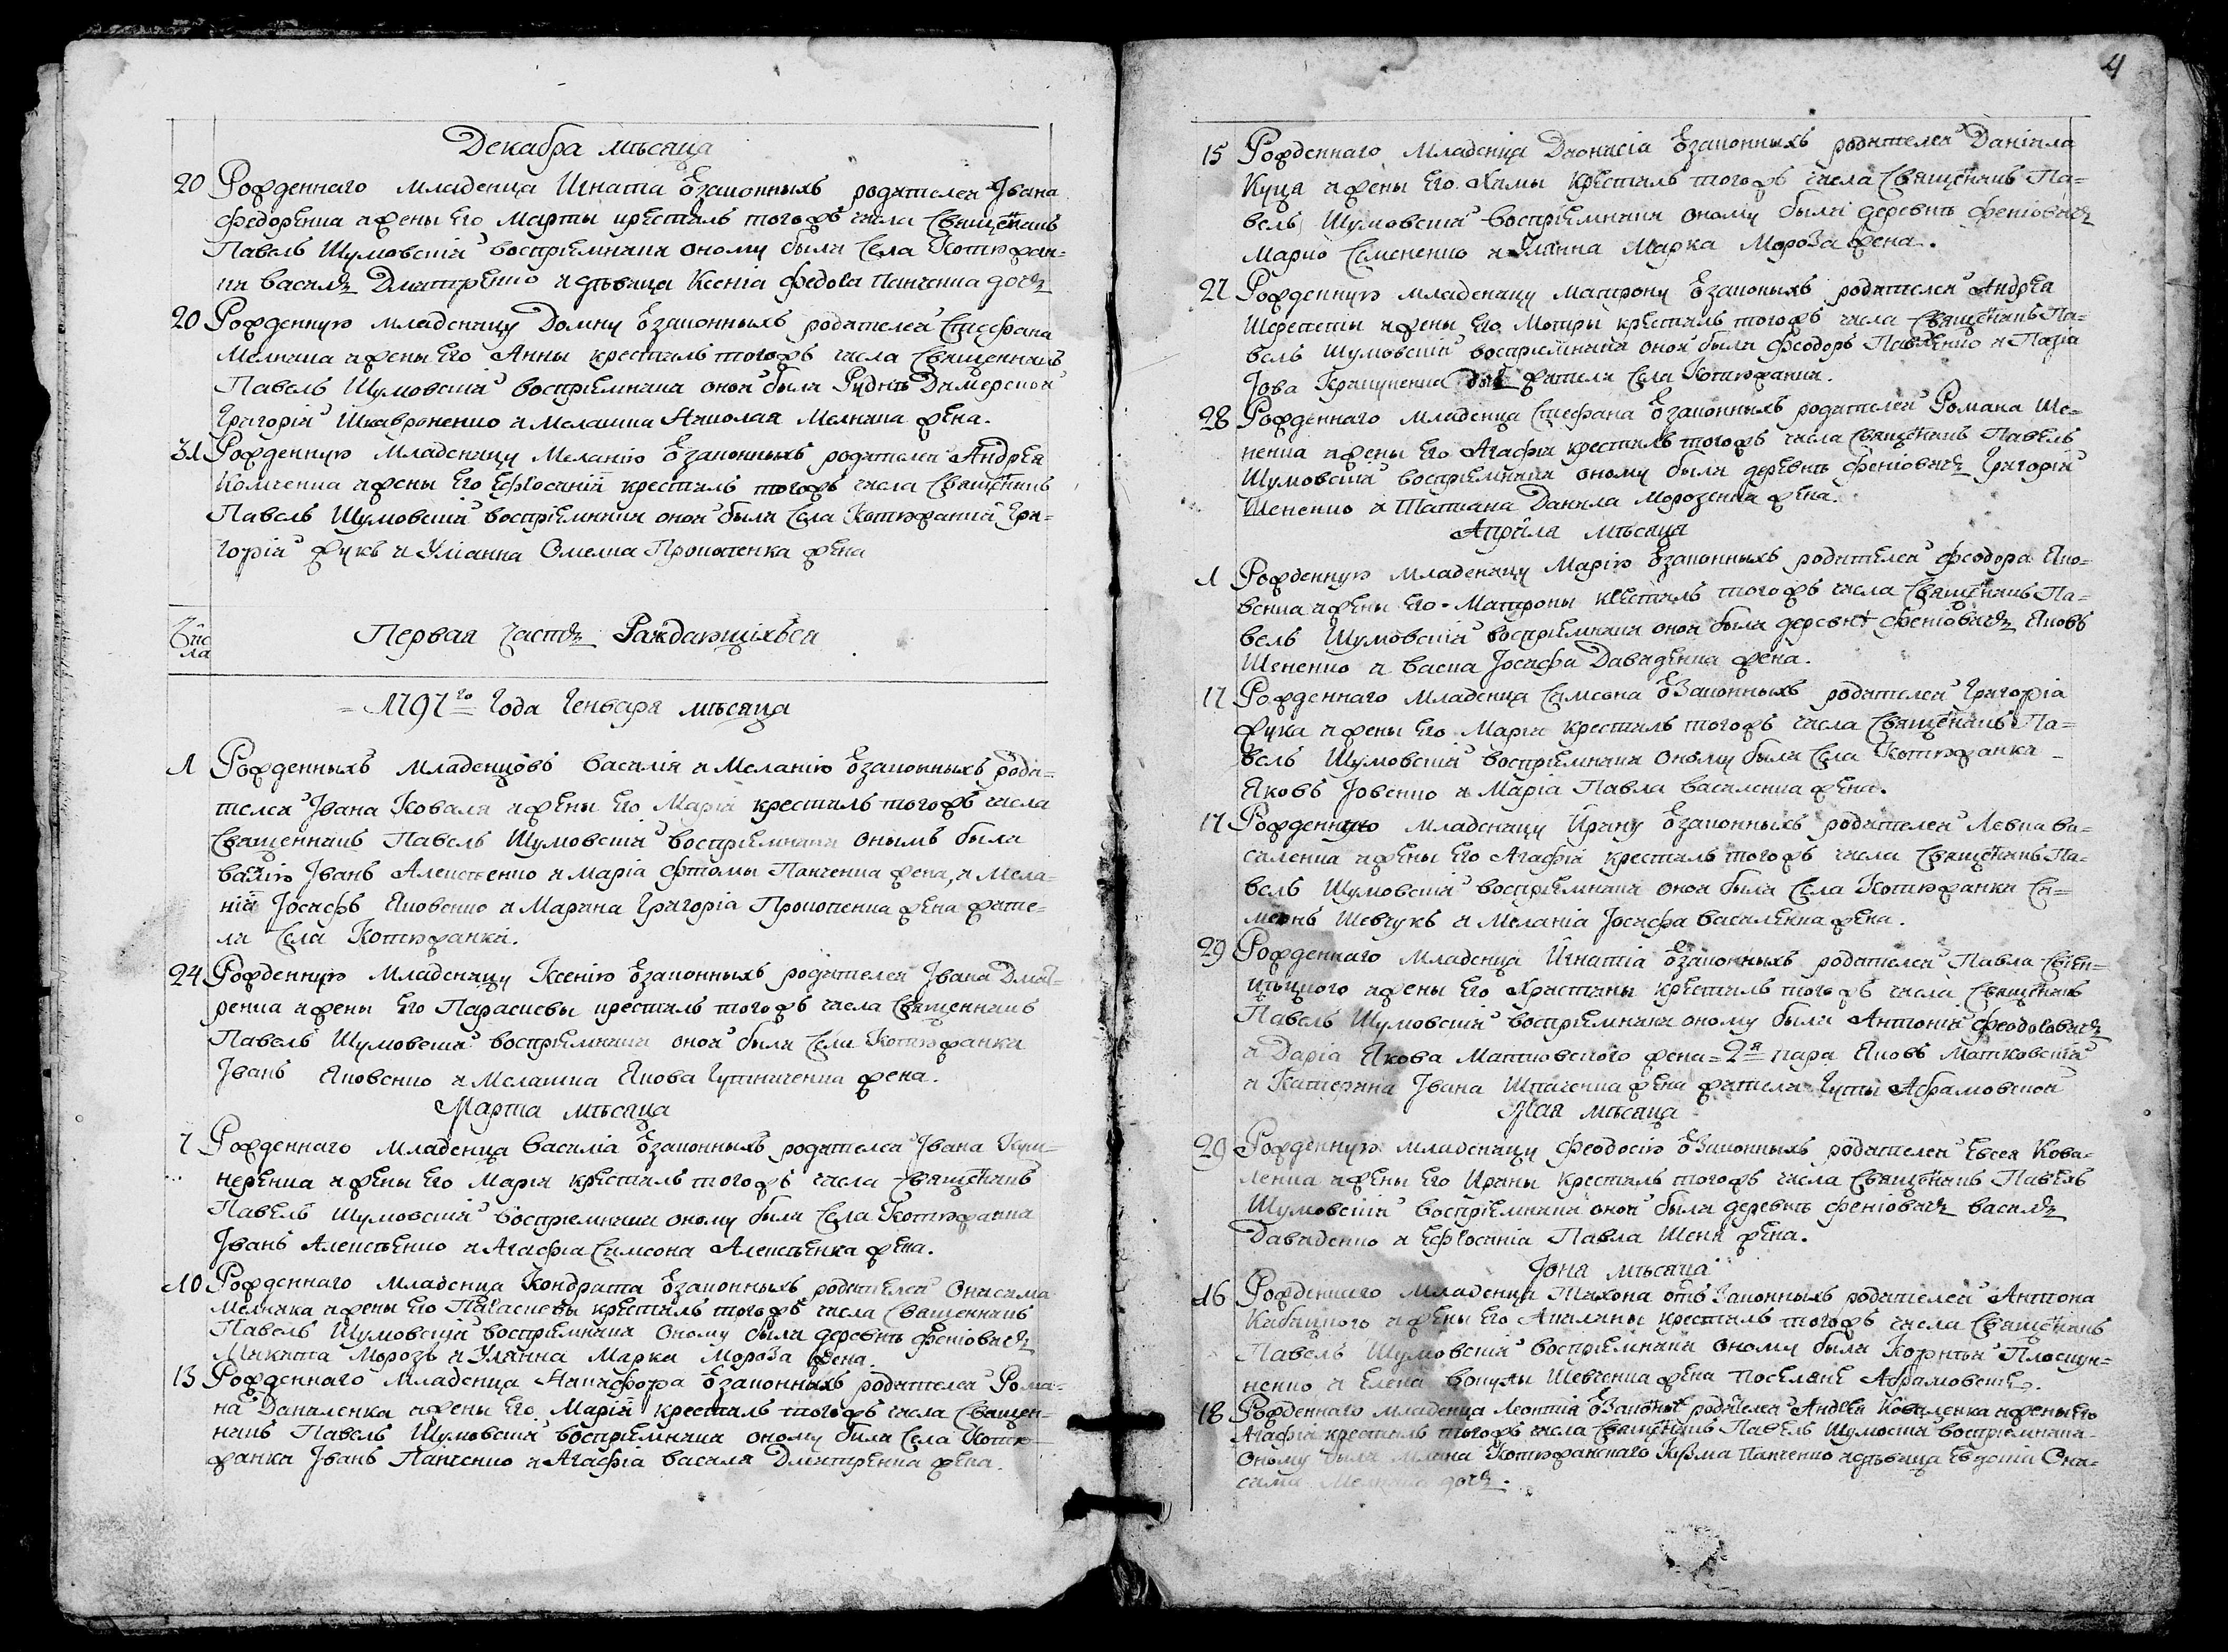 Декабра мѣсяца
20 Рожденнаго младенца Игната Ѿзаконныхъ родителей Івана
Федоренка ижены Его Марты крестилъ тогожъ числа Священикъ
Павелъ Шумовскій воспріемники оному были Села Котюжан-
ки Василь Дмитренко и дѣвица Ксеніа Федора Панченка дочь
20 Рожденную младеницу Домну Ѿзаконныхъ родителей Стефана
Мелника ижены Его Анны крестилъ тогожъ числа Священникъ
Павелъ Шумовскій воспріемники оной были Рудни Димерской
Григорій Шкавроненко и Мелашка Николая Мелника жена.
31 Рожденную младеницу Меланію Ѿзаконныхъ родителей Андрея
ижены Его Ефросиніи крестилъ тогожъ числа Священикъ
Павелъ Шумовскій воспріемники оной были Села Котюжанки Гри-
горій Жукъ и Уліанна Омелка Прокопенка жена
Чис
ла
Первая часть Раждающихься
1797го Года Генваря мѣсяца
1 Рожденныхъ младенцовъ Василія и Меланію Ѿзаконныхъ роди-
телей Івана Коваля ижены Его Маріи крестилъ тогожъ числа
Священникъ Павелъ Шумовскій воспріемники онымъ были
Іванъ Алексѣенко и Маріа Фтомы Панченка жена, и Мела-
ніи Іосифъ Яковенко и Марина Григоріа Прокопенка жена жите-
ли Села Котюжанки.
24 Рожденную младеницу Ксенію Ѿзаконныхъ родителей Івана Дмит-
ренка ижены Его Параскевы крестилъ тогожъ числа Священникъ
Павелъ Шумовскій воспріемники оной были Села Котюжанки
Іванъ Яковенко и Мелашка Якова Гутниченка жена.
Марта мѣсяца
7 Рожденнаго младенца Василіа Ѿзаконныхъ родителей Івана Куш-
неренка ижены Его Маріи крестилъ тогожъ числа Священикъ
Павелъ Шумовскій воспріемники оному были Села Котюжанки
Іванъ Алексѣенко и Агафіа Симеона Алексѣенка жена.
10 Рожденнаго младенца Кондрата Ѿзаконныхъ родителей Онисима
Мелника ижены Его Параскевы крестилъ тогожъ числа Священникъ
Павелъ Шумовскій воспріемники оному были деревнѣ Феніовичь
Микита Морозъ и Улянна Марка Мороза жена.
13 Рожденнаго младенца Никифора Ѿзаконныхъ родителей Рома-
на Даниленка ижены Его Маріи крестилъ тогожъ числа Священ-
никъ Павелъ Шумовскій воспріемники оному были Села Котю-
жанки Іванъ Панченко и Агафіа Василя Дмитренка жена.
4
15 Рожденнаго младенца Дионисіа Ѿзаконныхъ родителей Даніила
Куца ижены Его Химы крестилъ тогожъ числа Священикъ Па-
велъ Шумовскій воспріемники оному были деревнѣ Феніовичь
Марко Семененко и Улянна Марка Мороза жена.
27 Рожденную младеницу Матрону Ѿзаконыхъ родителей Андрея
Шерепеты ижены Его Мотры крестилъ тогожъ числа Священикъ Па-
велъ Шумовскій воспріемники оной были Феодоръ Павленко и
Іова жители Села Котюжанки.
28 Рожденнаго младенца Стефана Ѿзаконныхъ родителей Романа Ше-
ненка ижены Его Агафіи крестилъ тогожъ числа Священикъ Павелъ
Шумовскій воспріемники оному были деревнѣ Феніовичь Григорій
Шененко и Татіана Данила Морозенка жена.
Априля мѣсяца
1 Рожденную младеницу Марію Ѿзаконныхъ родителей Феодора Яко-
венка ижены Его Матроны крестилъ тогожъ числа Священикъ Па-
велъ Шумовскій воспріемники оной были деревнѣ Феніовичь Яковъ
Шененко и Васка Іосифа Давиденка жена.
17 Рожденнаго младенца Симеона Ѿзаконныхъ родителей Григоріа
Жука ижены Его Маріи крестилъ тогожъ числа Священикъ Па-
велъ Шумовскій воспріемники оному были Села Котюжанки
Яковъ Іовенко и Маріа Павла Василенка жена.
17 Рожденную младеницу Ирину Ѿзаконныхъ родителей Левка Ва-
силенка ижены Его Агафіи крестилъ тогожъ числа Священикъ Па-
велъ Шумовскій воспріемники оной были Села Котюжанки Си-
меонъ Шевчукъ и Меланіа Іосифа Василенка жена.
29 Рожденнаго младенца Игнатіа Ѿзаконныхъ родителей Павла
ижены Его Христины крестилъ тогожъ числа Священикъ
Павелъ Шумовскій воспріемники оному были Антоній Феодоровичь
и Даріа Якова Матковского жена = 2я пара Яковъ Матковскій
и Катерина Івана Шпиченка жена жители Гуты Абрамовской
Мая мѣсяца
29 Рожденную младеницу Феодосію Ѿзаконныхъ родителей Евсея Кова-
ленка ижены Его Ирины крестилъ тогожъ числа Священикъ Павелъ
Шумовскій воспріемники оной были деревнѣ Феніовичь Василь
Давиденко и Ефросиніа Павла Шеня жена.
Іюня мѣсяца
16 Рожденнаго младенца Тихона отъ Законныхъ родителей Антона
Кабацкого ижены Его Акилины крестилъ тогожъ числа Священикъ
Павелъ Шумовскій воспріемники оному были Корнѣй Плоскун-
ненко и Елена Вакулы Шевченка жена поселяне Абрамовские.
18 Рожденнаго младенца Леонтіа Ѿзаконых родителей Андрея Коваленка ижены Его
Агафіи крестилъ тогожъ числа Священикъ Павелъ Шумоскій воспріемники
оному были млина Котюжанскаго Кузма Панченко идѣвица Евдокіи Они-
сима Мелника дочь.